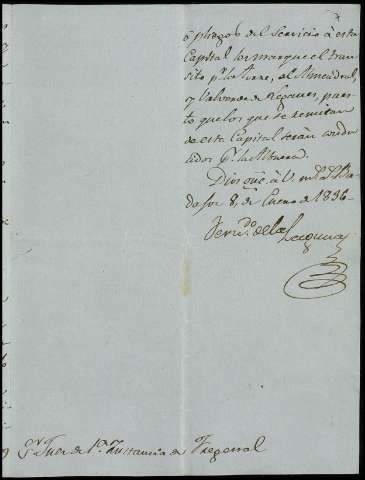 ó pliegos del Servicio à esta
Capital les marque el tran
sito pr. la Torre, el Almendral,
y Valverde de Leganes, pues
to que los que se remitan
de esta Capital seràn condu
cidos pr. la Albuera.
Dios gue. à V. ms. as. Ba
dajoz 8, de Enero de 1836
Ferndo. de la Laguna
Sr. Juez de 1a. Instancia de Fregenal